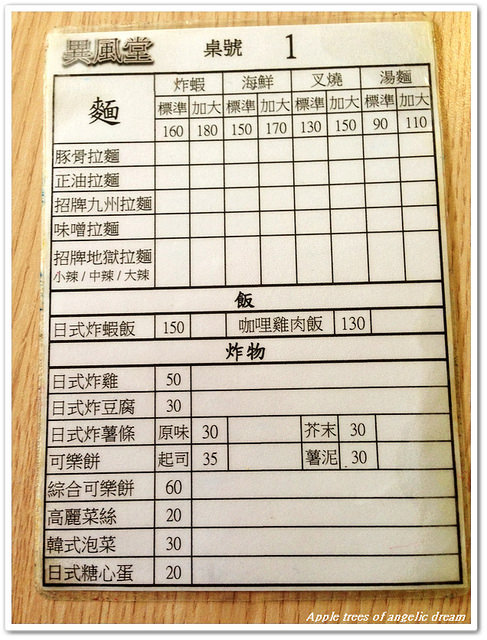 異風堂 桌號 1
麵 炸蝦 海鮮 叉燒 湯麵
標準 加大 標準 加大 標準 加大 標準 加大
160 180 150 170 130 150 90 110
豚骨拉麵
正油拉麵
招牌九州拉麵
味噌拉麵
招牌地獄拉麵
小辣/中辣/大辣
飯
日式炸蝦飯 150 咖哩雞肉飯 130
炸物
日式炸雞 50
日式炸豆腐 30
日式炸薯條 原味 30 芥末 30
可樂餅 起司 35 薯泥 30
綜合可樂餅 60
高麗菜絲 20
韓式泡菜 30
日式糖心蛋 20
Apple trees of angelic dream